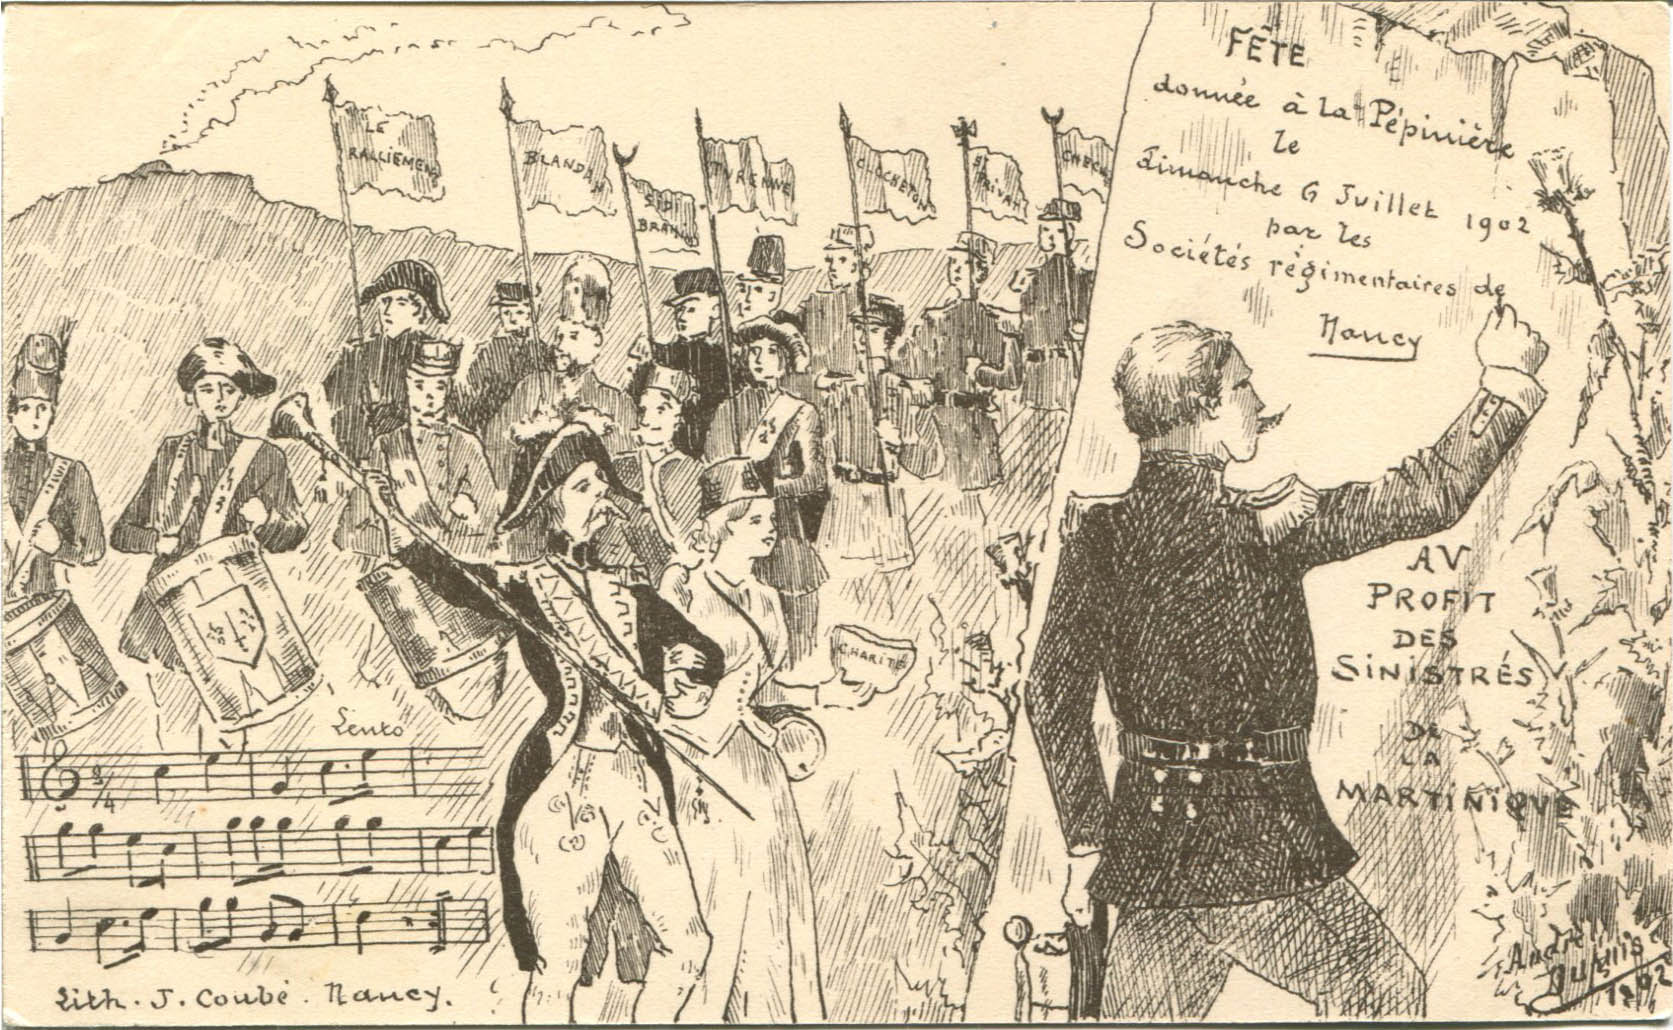 LE
RALLIEMENT
BLANDAN
SIDI
BRAHIM
TURENNE
CLOCHETON
ST
PRIVAT
FÊTE
donnée à la Pépinière
le
Dimanche 6 Juillet 1902
par les
Sociétés régimentaires de
Nancy
AU
PROFIT
DES
SINISTRÉS
DE
LA
MARTINIQUE
CHARITÉ
Lento
3/4
Lith. J. Coubé. Nancy.
André
1902